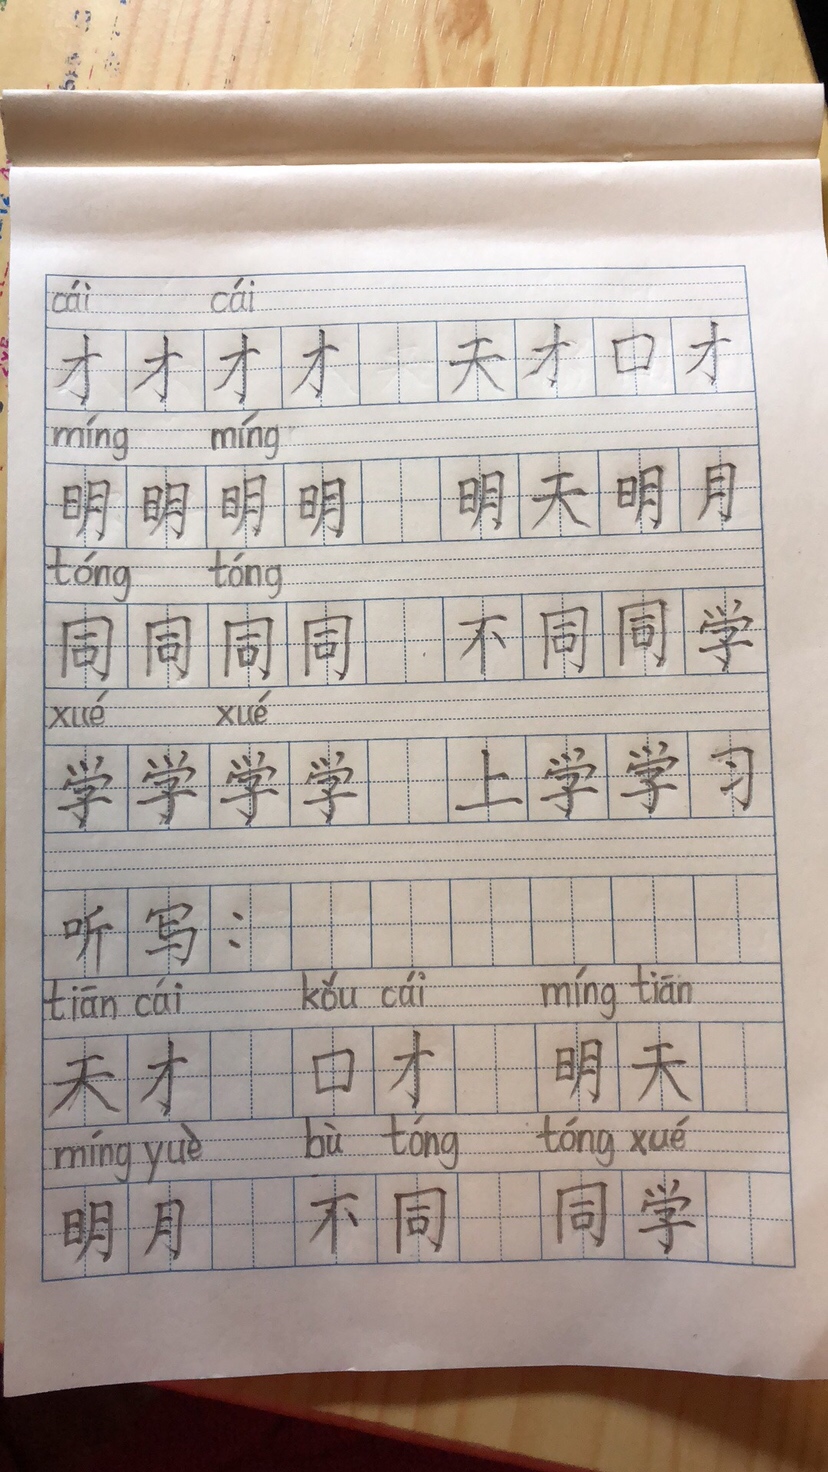 cái cái
才才才才 天才口才
míng míng
明明明明 明天明月
tóng tóng
同同同同 不同同学
xué xué
学学学学 上学学习
听写:
tiān cái kǒu cái míng tiān
天才 口才 明天
míng yuè bù tóng tóng xué
明月 不同 同学